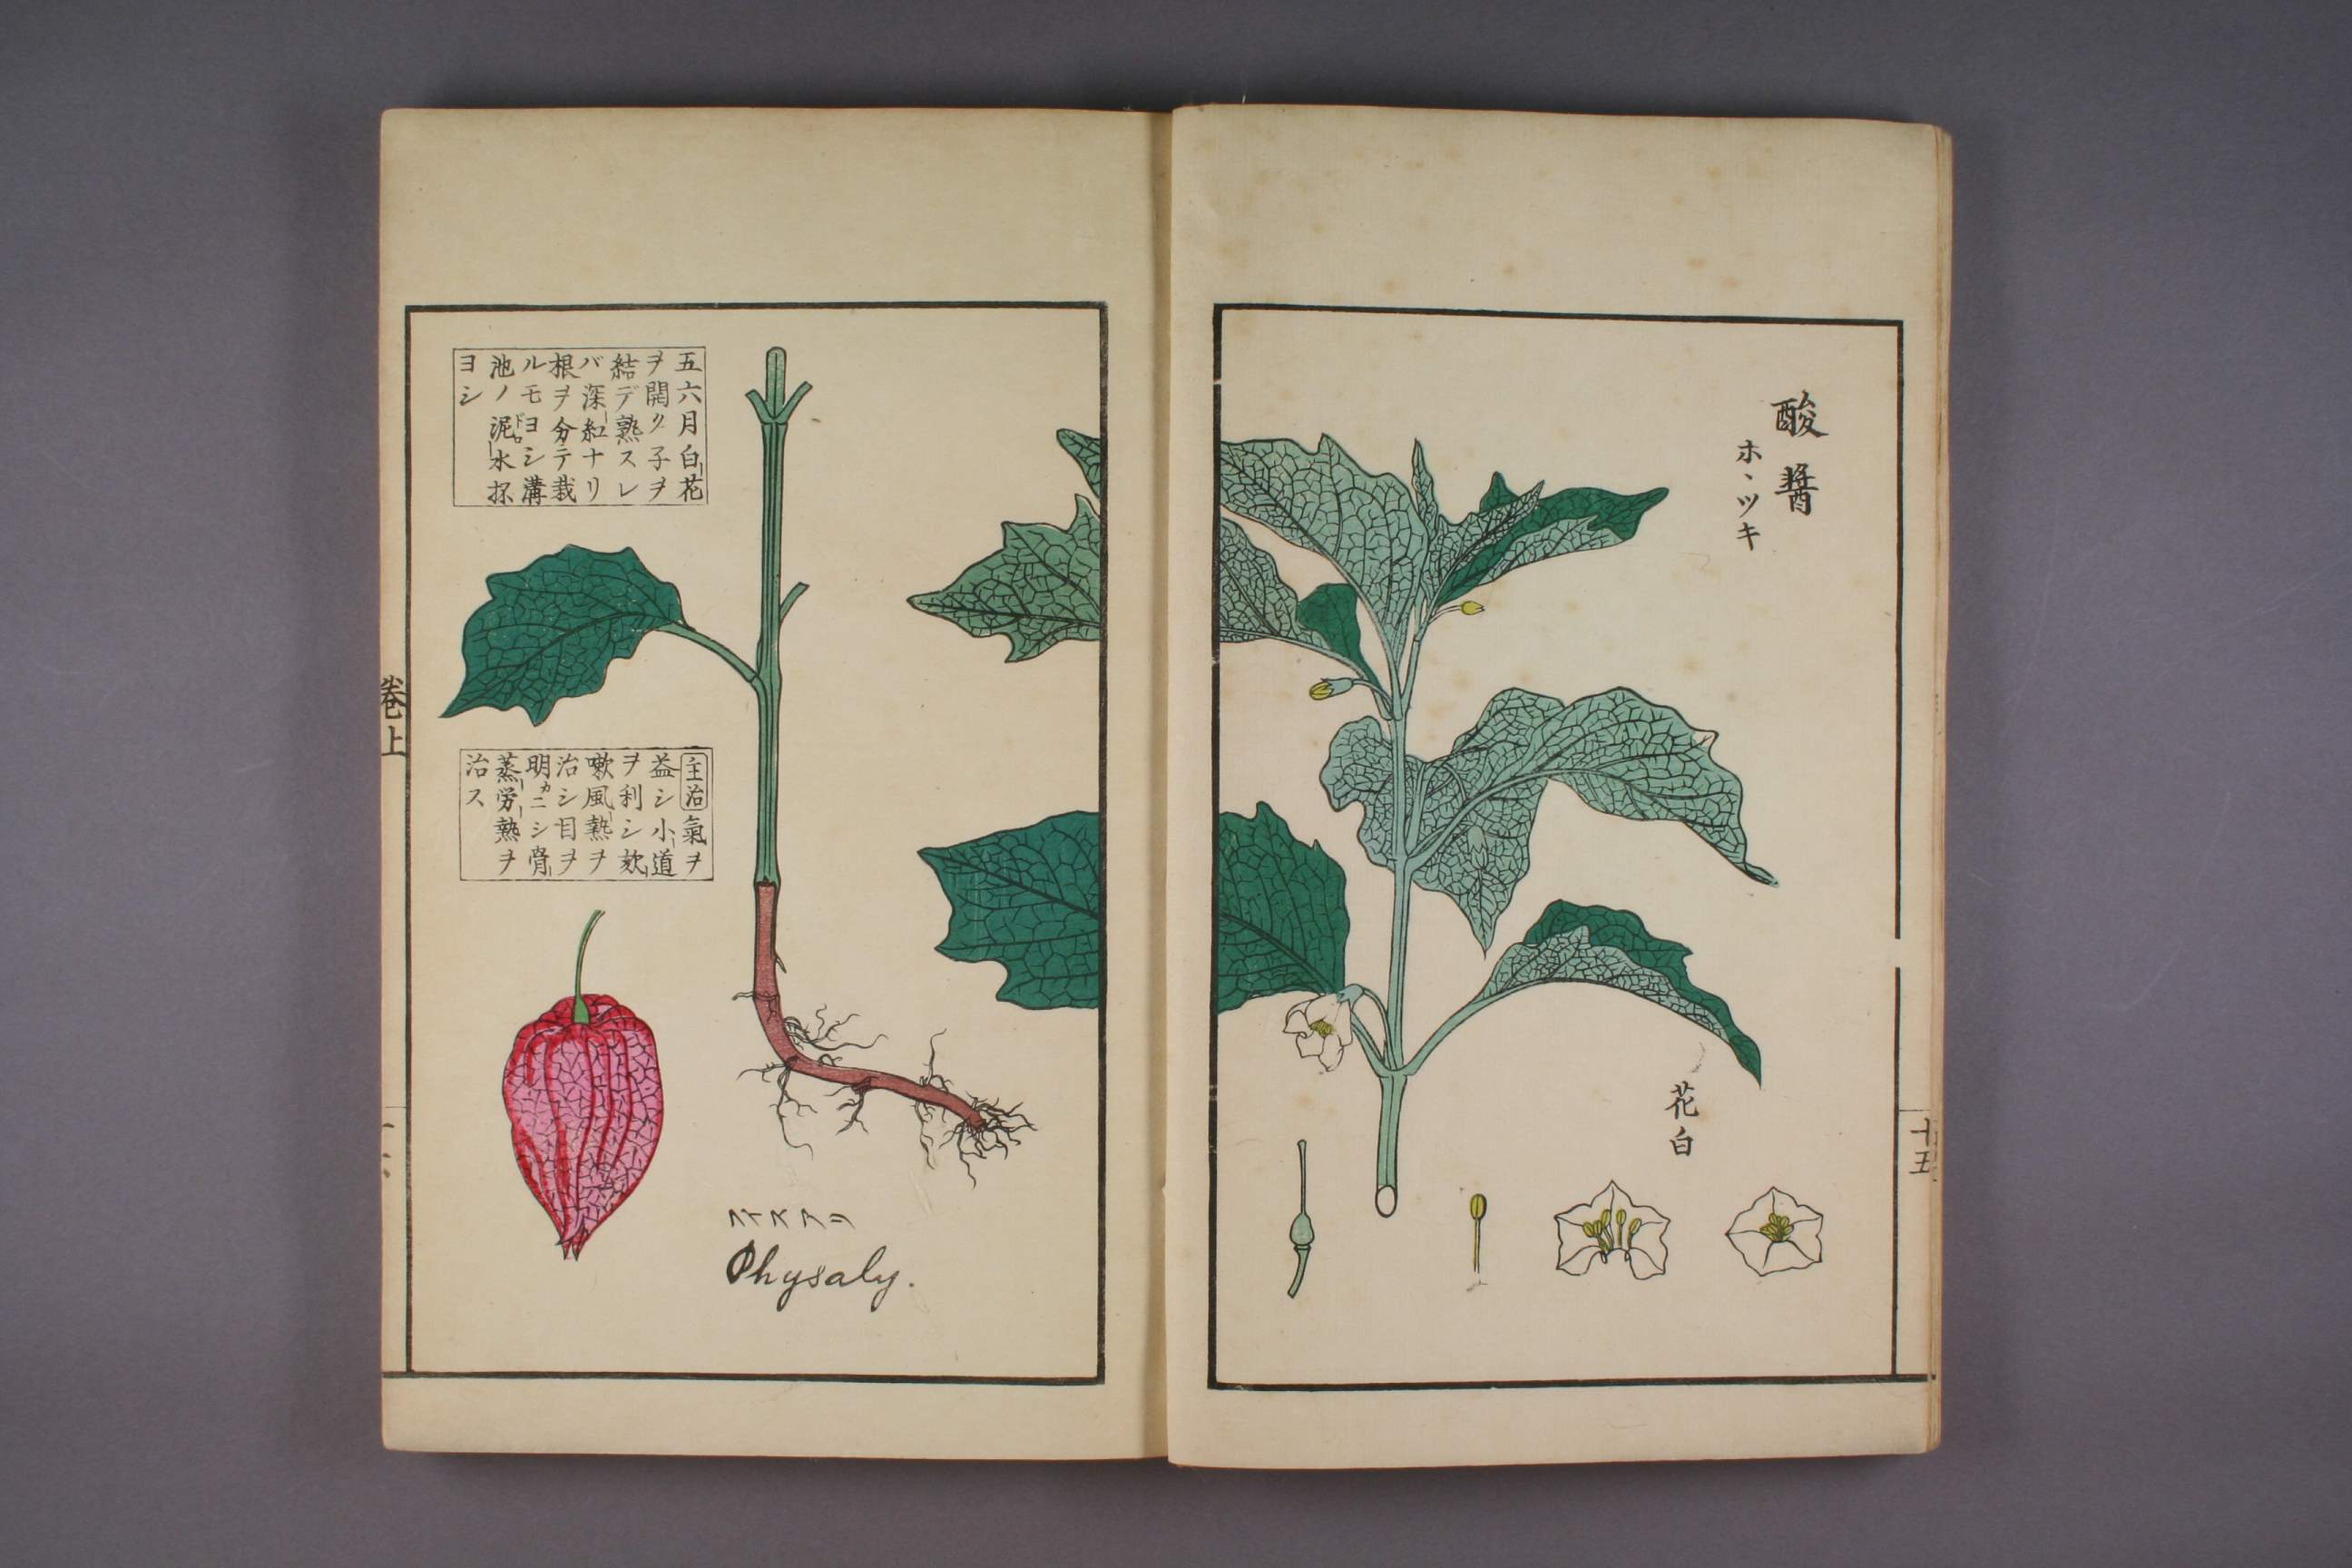 酸醬
ホヽツキ
花白
十五
五六月白花
ヲ開ク子ヲ
結デ熟スレ
バ深紅ナリ
根ヲ分テ栽
ルモヨシ溝
池ノ泥水抔
ドロ
ヨシ
主治氣ヲ
益シ小道
ヲ利シ欬
嗽風熱ヲ
治シ目ヲ
明カニシ骨
蒸労熱ヲ
治ス
フイスアリ
Physaly.
卷上